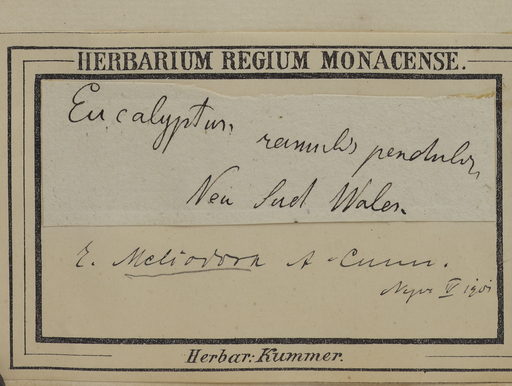 HERBARIUM REGIUM MONACENSE.
Eucalyptus ramulis pendulis,
Neu Sud Wales.
E. Meliodora A. Cunn.
V 1901
Herbar: Kummer.